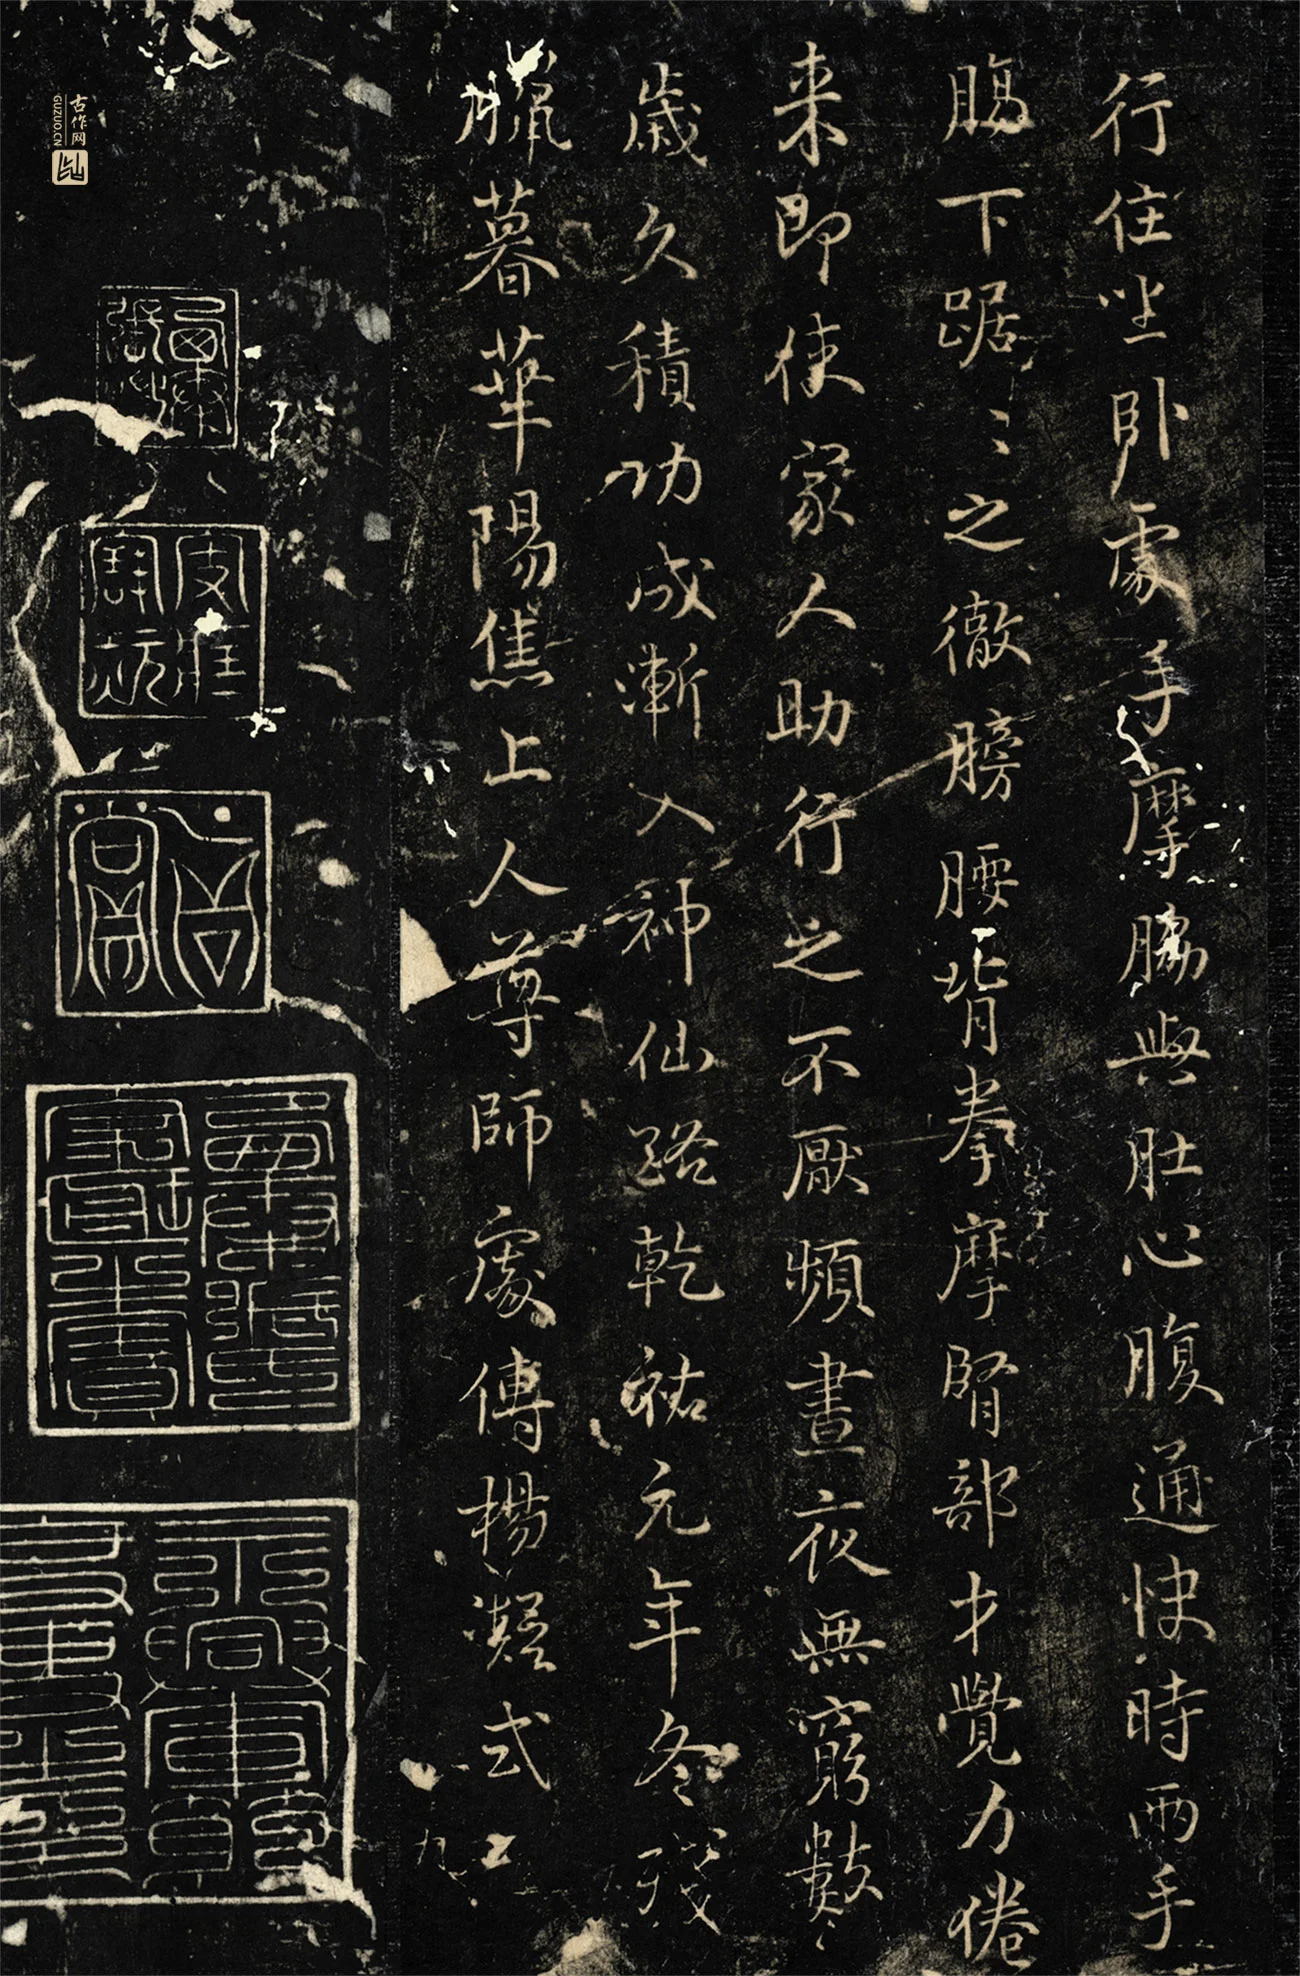 行住坐臥處手摩脅與肚心腹通快時兩手
腸下踞〻之徹膀腰背拳摩腎部才覺力倦
来即使家人助行之不厭頻晝夜無窮數
歲久積功成漸入神仙路乾祐元年冬殘
臘暮華陽焦上人尊師處傳楊凝式
九
古作网
GUZUO.CN